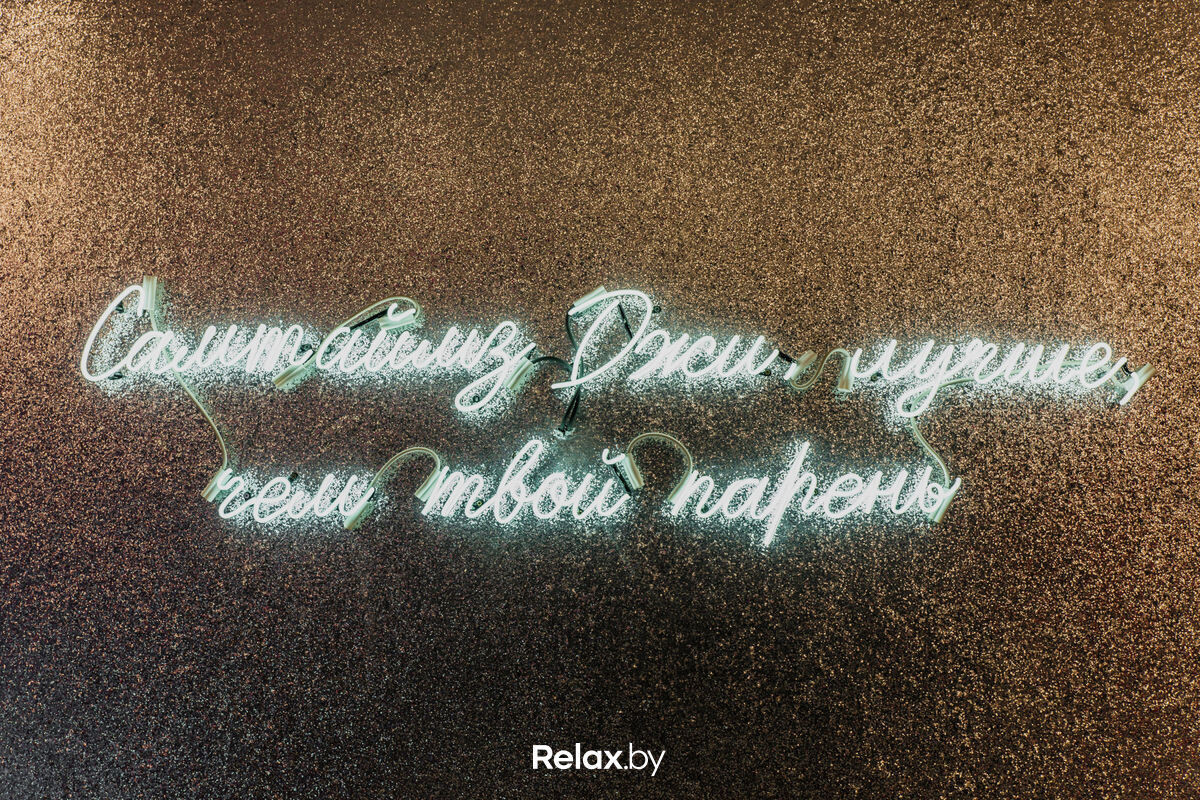 Самтаймз Джи лучше
чем твой парень
Relax.by